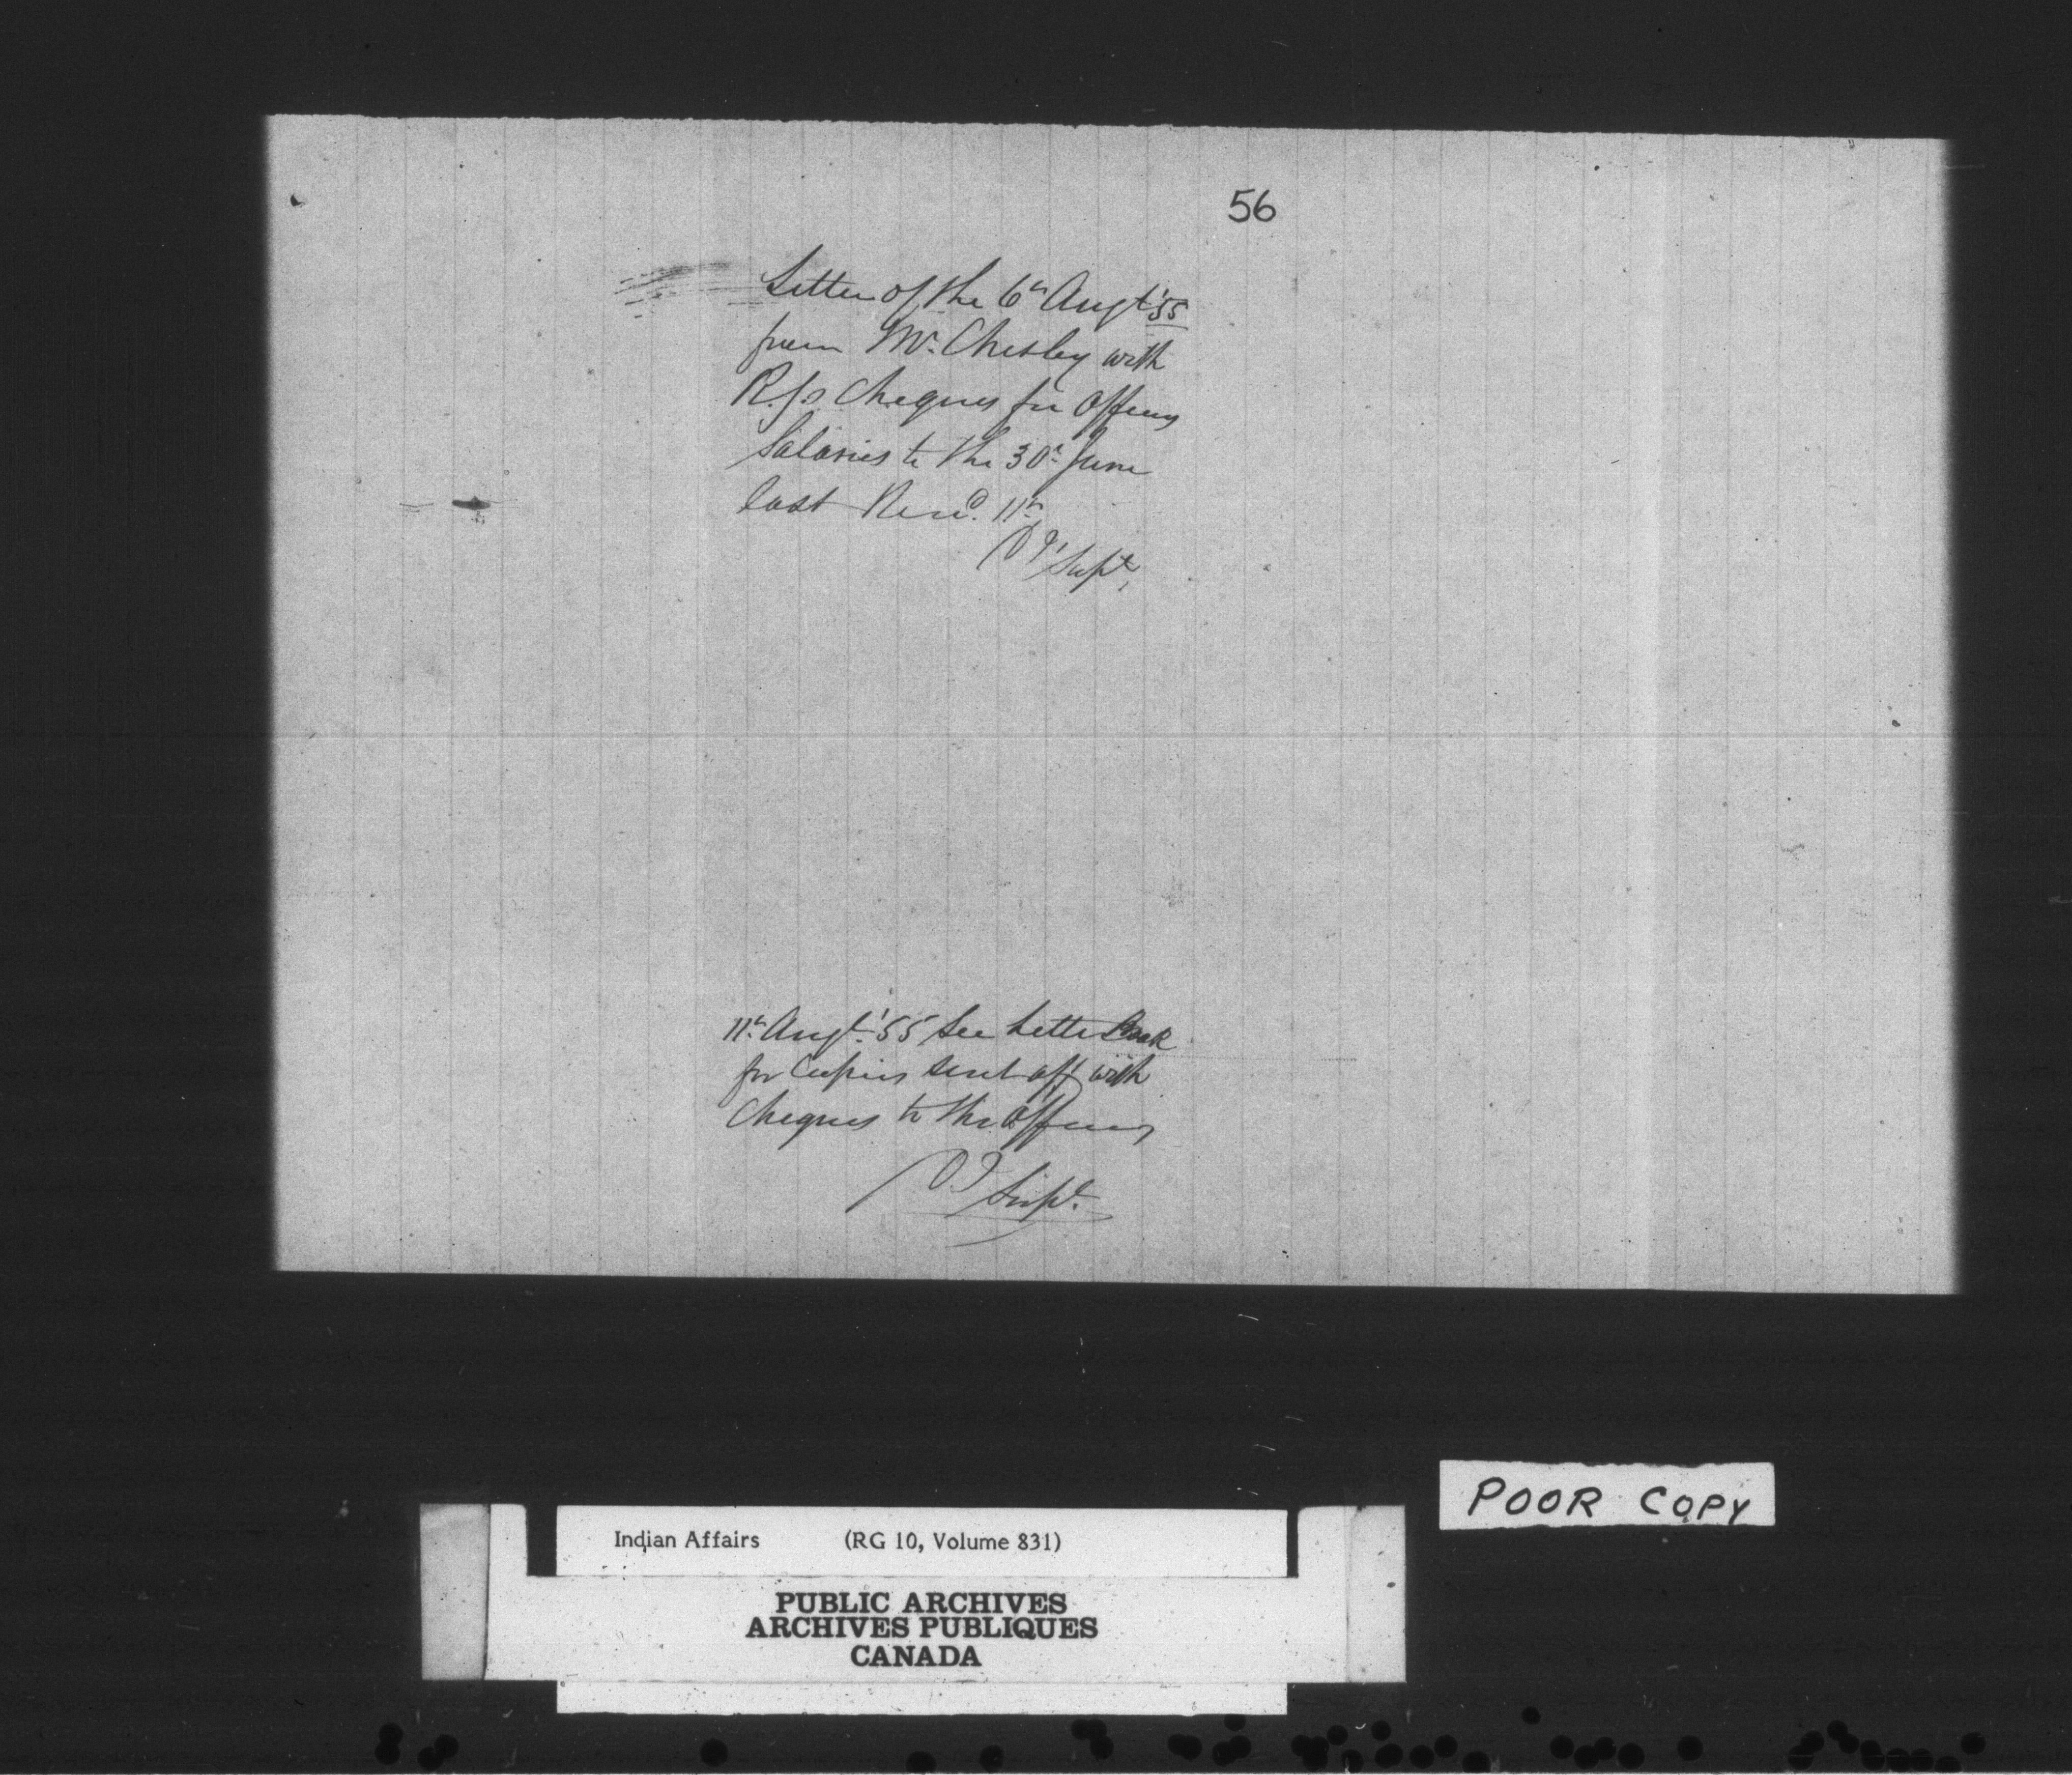 56
Letter of the 6th Augt '55
from Mr. Chesley with
Cheques for Officers
Salaries to the 30th June
last Recd. 11th
Supt.
11th Augt. '55 See Letter Book
for Copies sent off with
Cheques to the Officers
Supt.
POOR COPY
Indian Affairs (RG 10, Volume 831)
PUBLIC ARCHIVES
ARCHIVES PUBLIQUES
CANADA